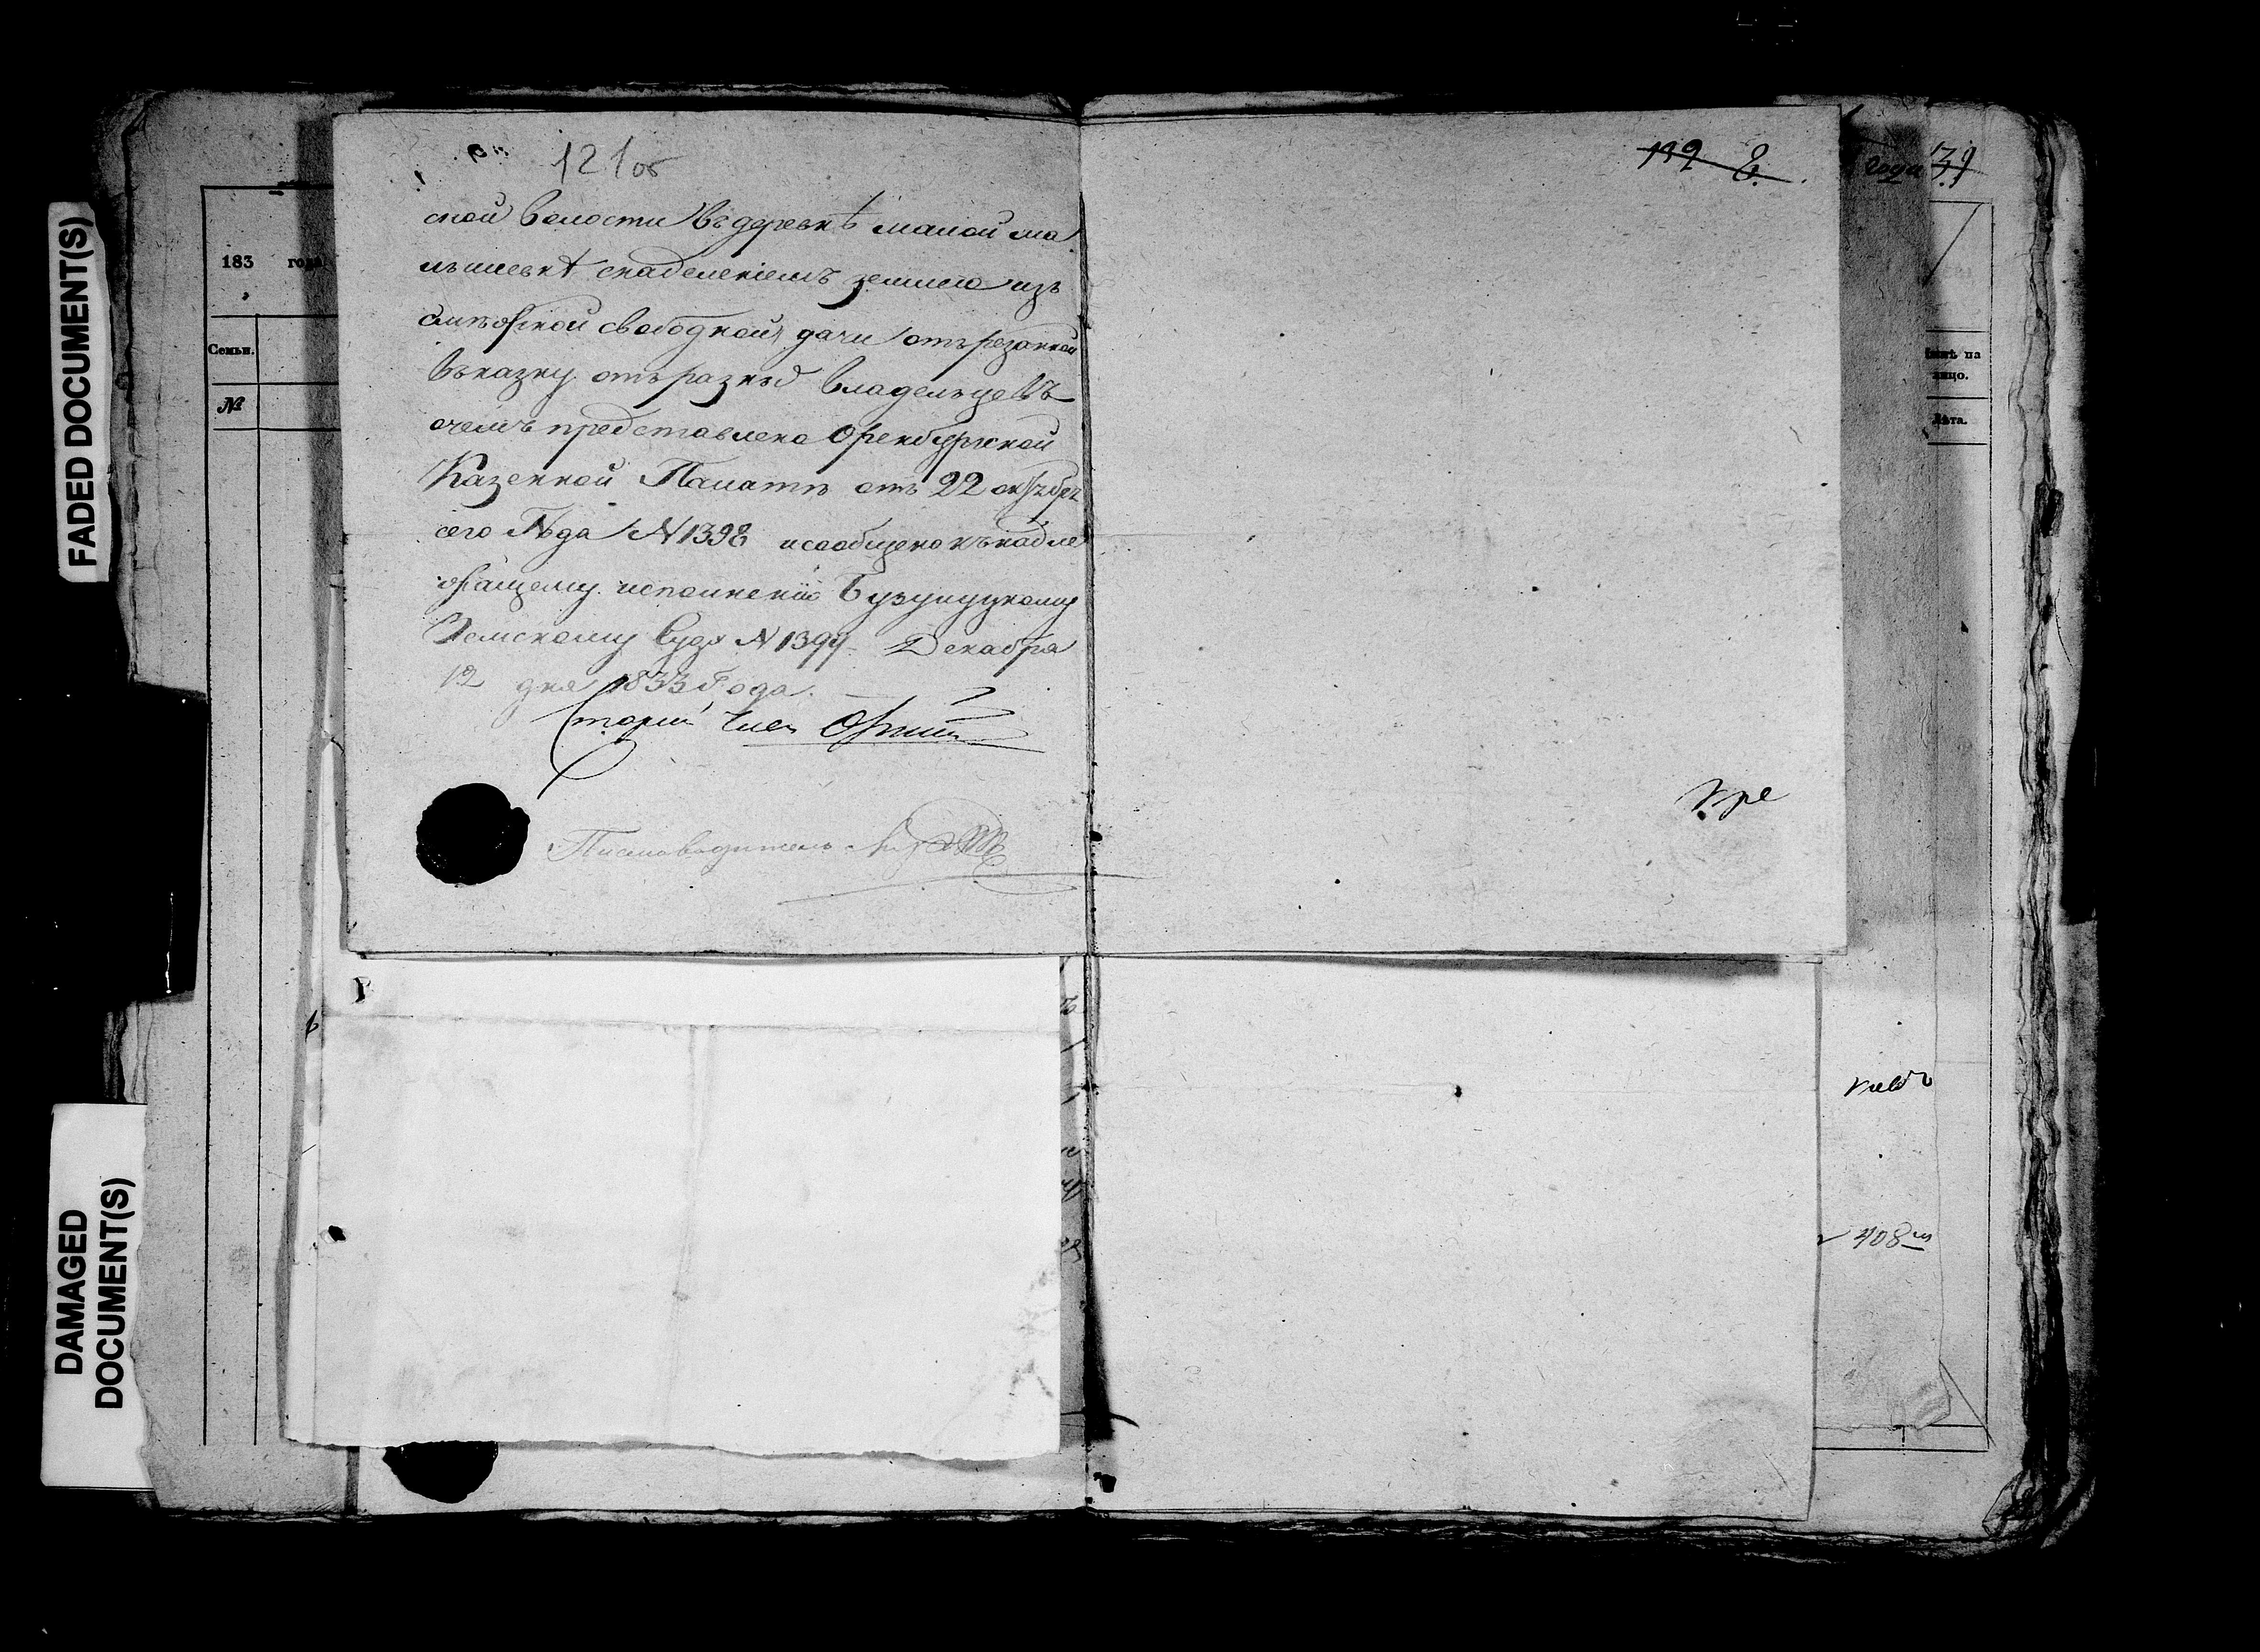 FADED DOCUMENT(S)
DAMAGED
DOCUMENT(S)
183 года
Семьи.
№
121 об
ской волости въ деревнѣ малой ма
лышевкѣ снаделениемъ землею изъ
свободной дачи отърезанной
въ казну отъ разныхъ владельцевъ
очемъ представлено Оренбургской
Казенной Палатѣ отъ 22 октября
сего Года N 1398 исообщено кънадле
жащему исполнению Бузулуцкому
Земскому Суду N 1399 Декабря
12 дня 1833 Года.
Старш Член
Писмоводитель
132 8.
года 139
на
лицо.
Лѣта.
408